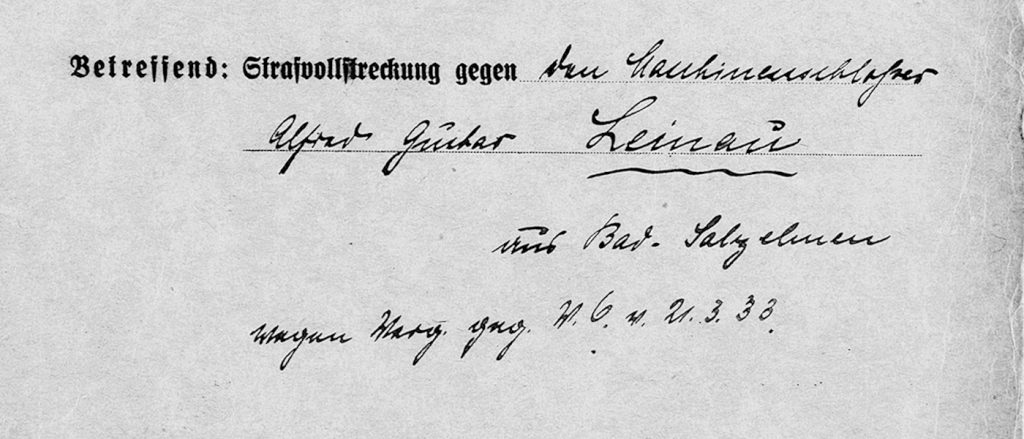 Betreffend: Strafvollstreckung gegen den Maschinenschlosser
Alfred Gustav Leinau
aus Bad-Salzelmen
wegen Verg. geg. V. 6. v. 21.3.33.